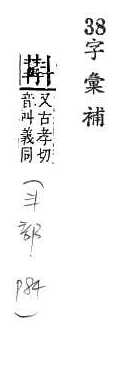 38字彙補
又古孝切
音叫義同
部. P84)